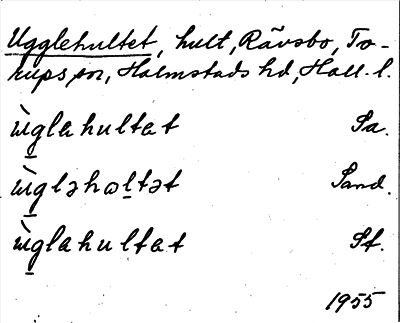 Ugglehultet, hult, Rävsbo, To-
rups sn, Halmstads hd, Hall. l.
ùglahultat Sa.
ùgləhωltət Sand.
ùglahultat St.
1955